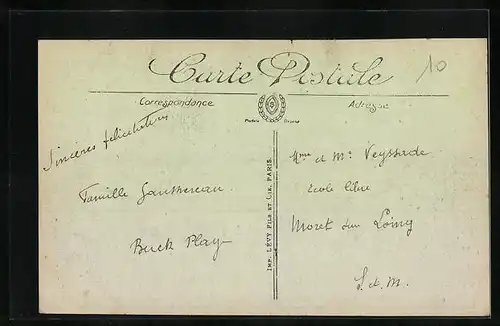 10
Carte Postale
Correspondance
Adresse
Modèle Déposé
Sincères félicitations
Famille Gauthereau
Buck Play
IMP. LÉVY FILS ET CIE, PARIS.
Mme et Mr Veyssade
école libre
Moret sur Loing
S. et M.